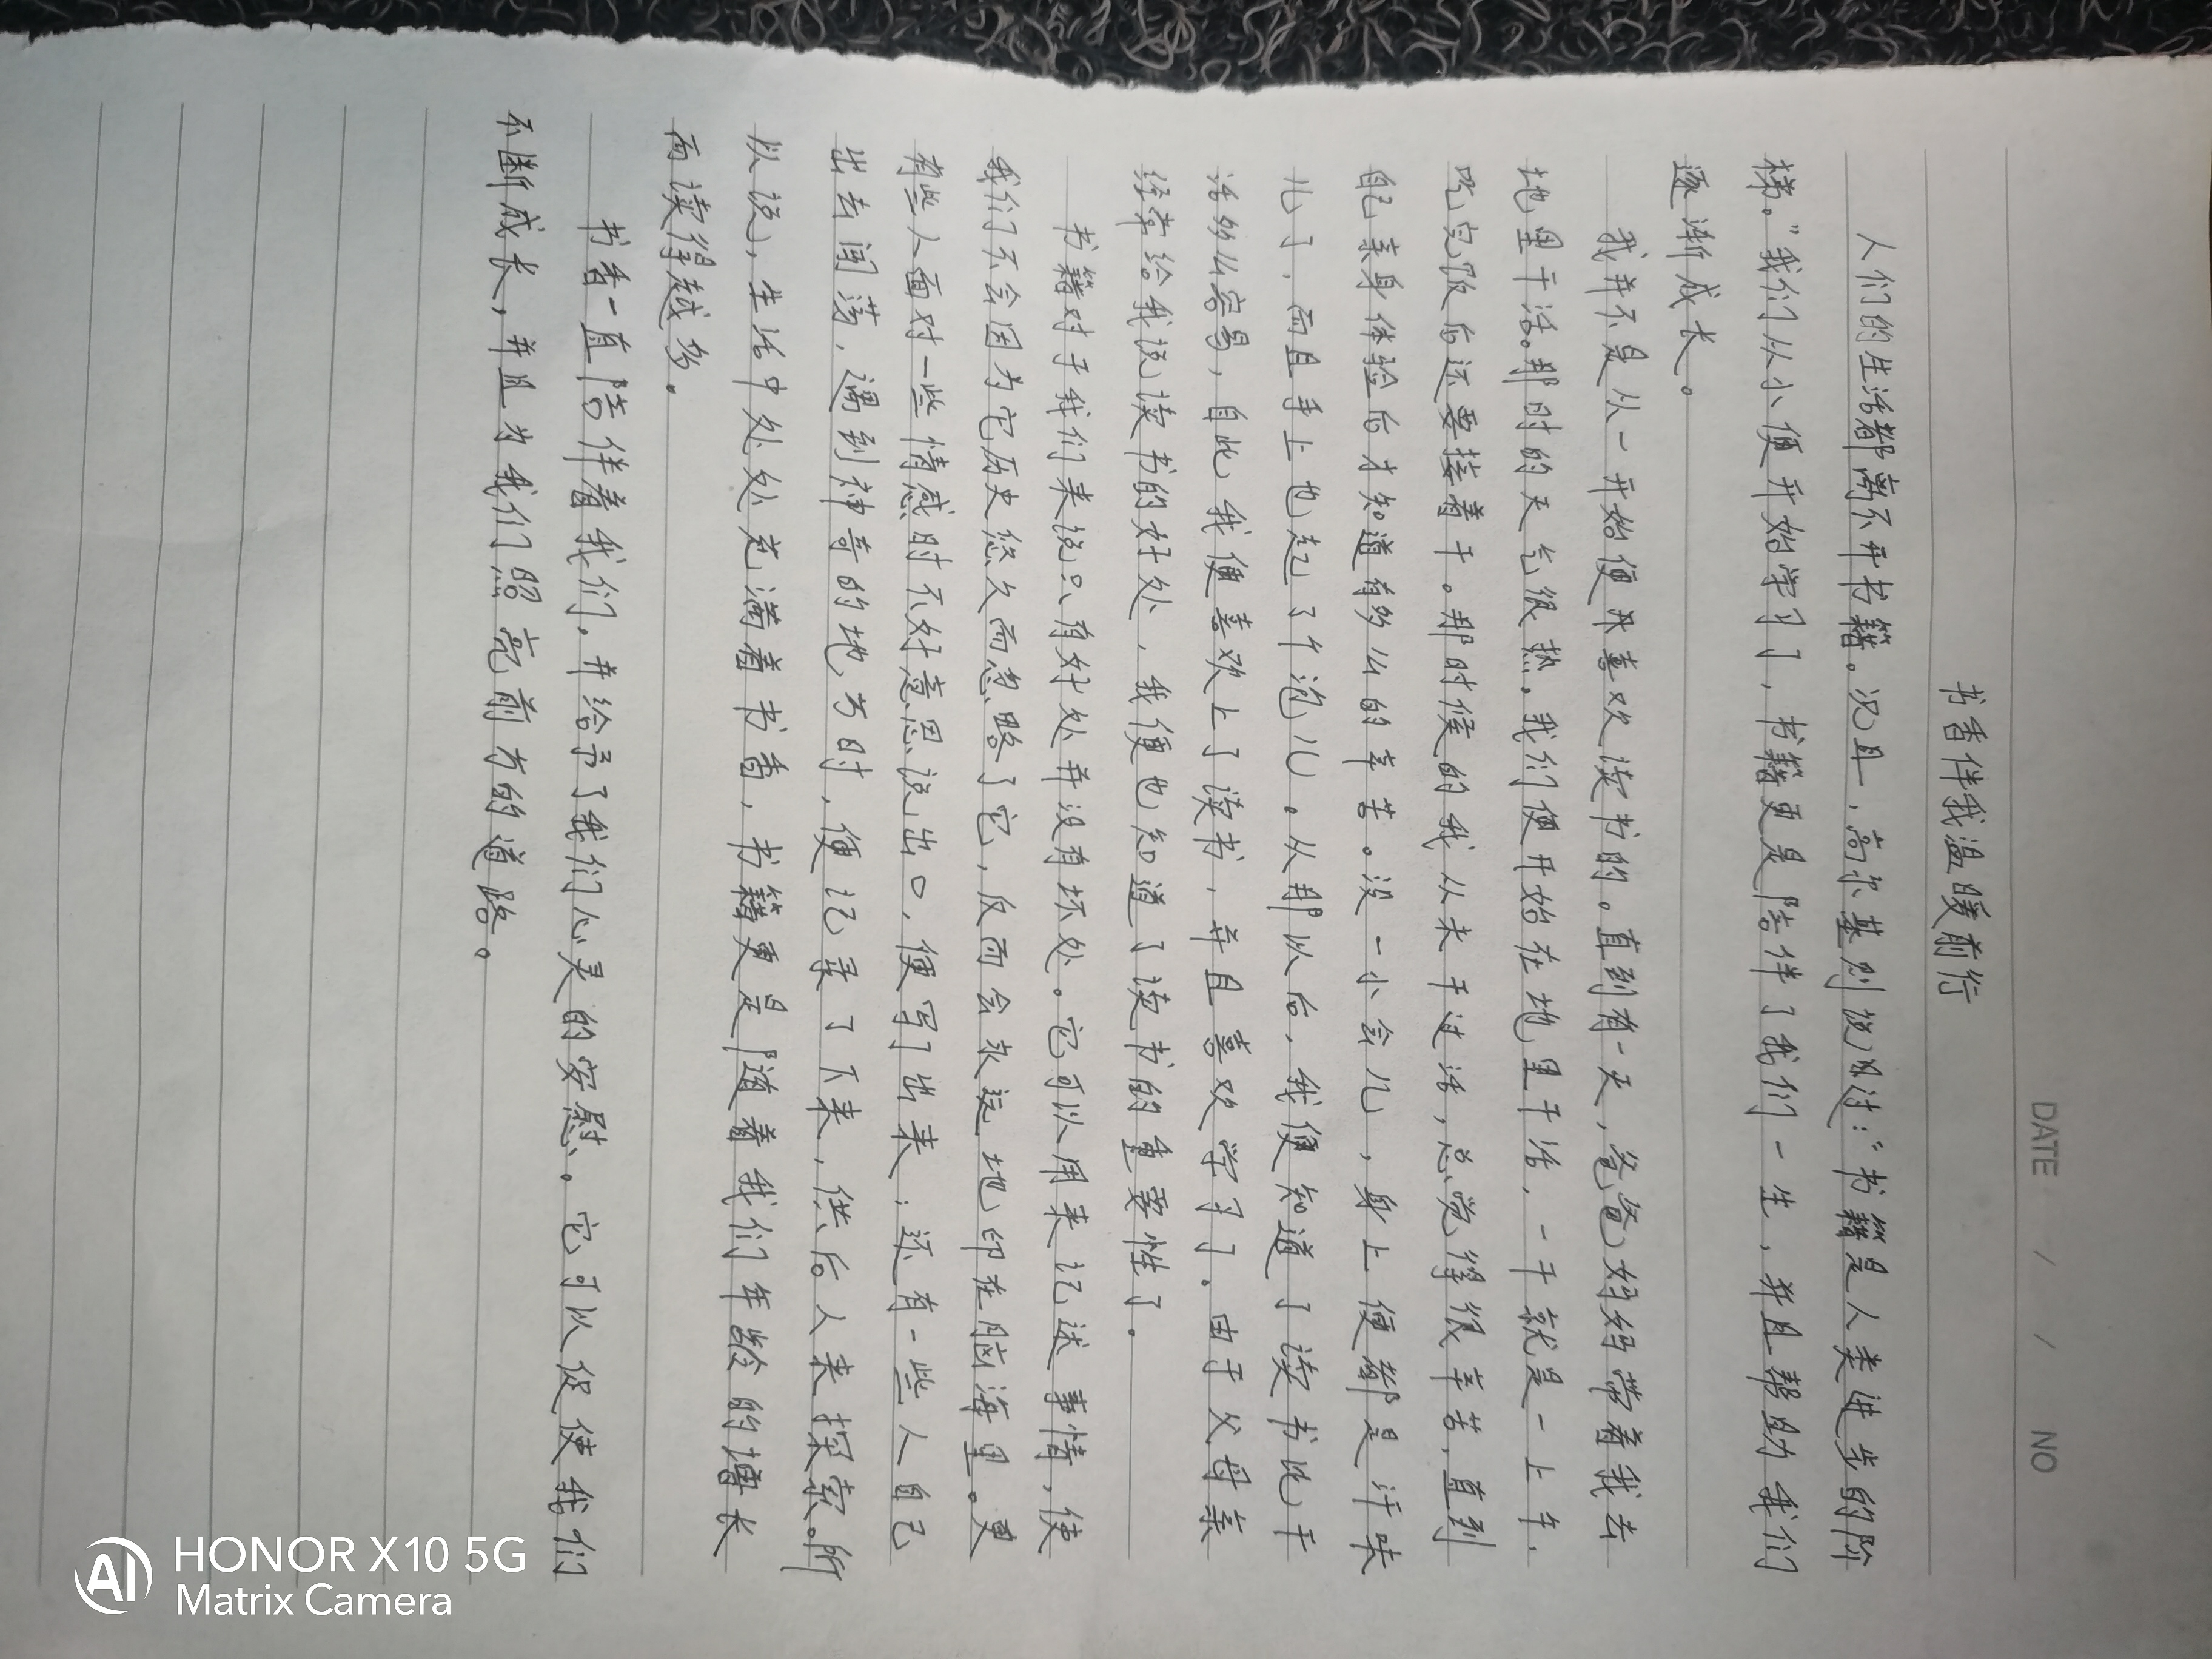 DATE / / NO
书香伴我温暖前行
人们的生活都离不开书籍。况且，高尔基则说过：“书籍是人类进步的阶
梯。”我们从小便开始学习了，书籍更是陪伴了我们一生，并且帮助我们
逐渐成长。
我并不是从一开始便喜欢读书的。直到有一天，爸爸妈妈带着我去
地里干活。那时的天气很热，我们便开始在地里干活，一干就是一上午，
吃完饭后还要接着干。那时候的我从未干过活，总觉得很辛苦，直到
自己亲身体验后才知道有多么的辛苦。没一小会儿，身上便都是汗味
儿了，而且手上也起了个泡儿。从那以后，我便知道了读书比干
活多么容易，自此我便喜欢上了读书，并且喜欢学习了。由于父母亲
经常给我说读书的好处，我便也知道了读书的重要性了。
书籍对于我们来说只有好处并没有坏处。它可以用来记述事情，使
我们不会因为它历史悠久而忽略了它，反而会永远地印在脑海里。更
有些人面对一些情感时不好意思说出口，便写了出来；还有一些人自己
出去闯荡，遇到神奇的地方时，便记录了下来，供后人来探索。所
以说，生活中处处充满着书香，书籍更是随着我们年龄的增长
而读得越多。
书香一直陪伴着我们，并给予了我们心灵的安慰。它可以促使我们
不断成长，并且为我们照亮前方的道路。
AI HONOR X10 5G
Matrix Camera